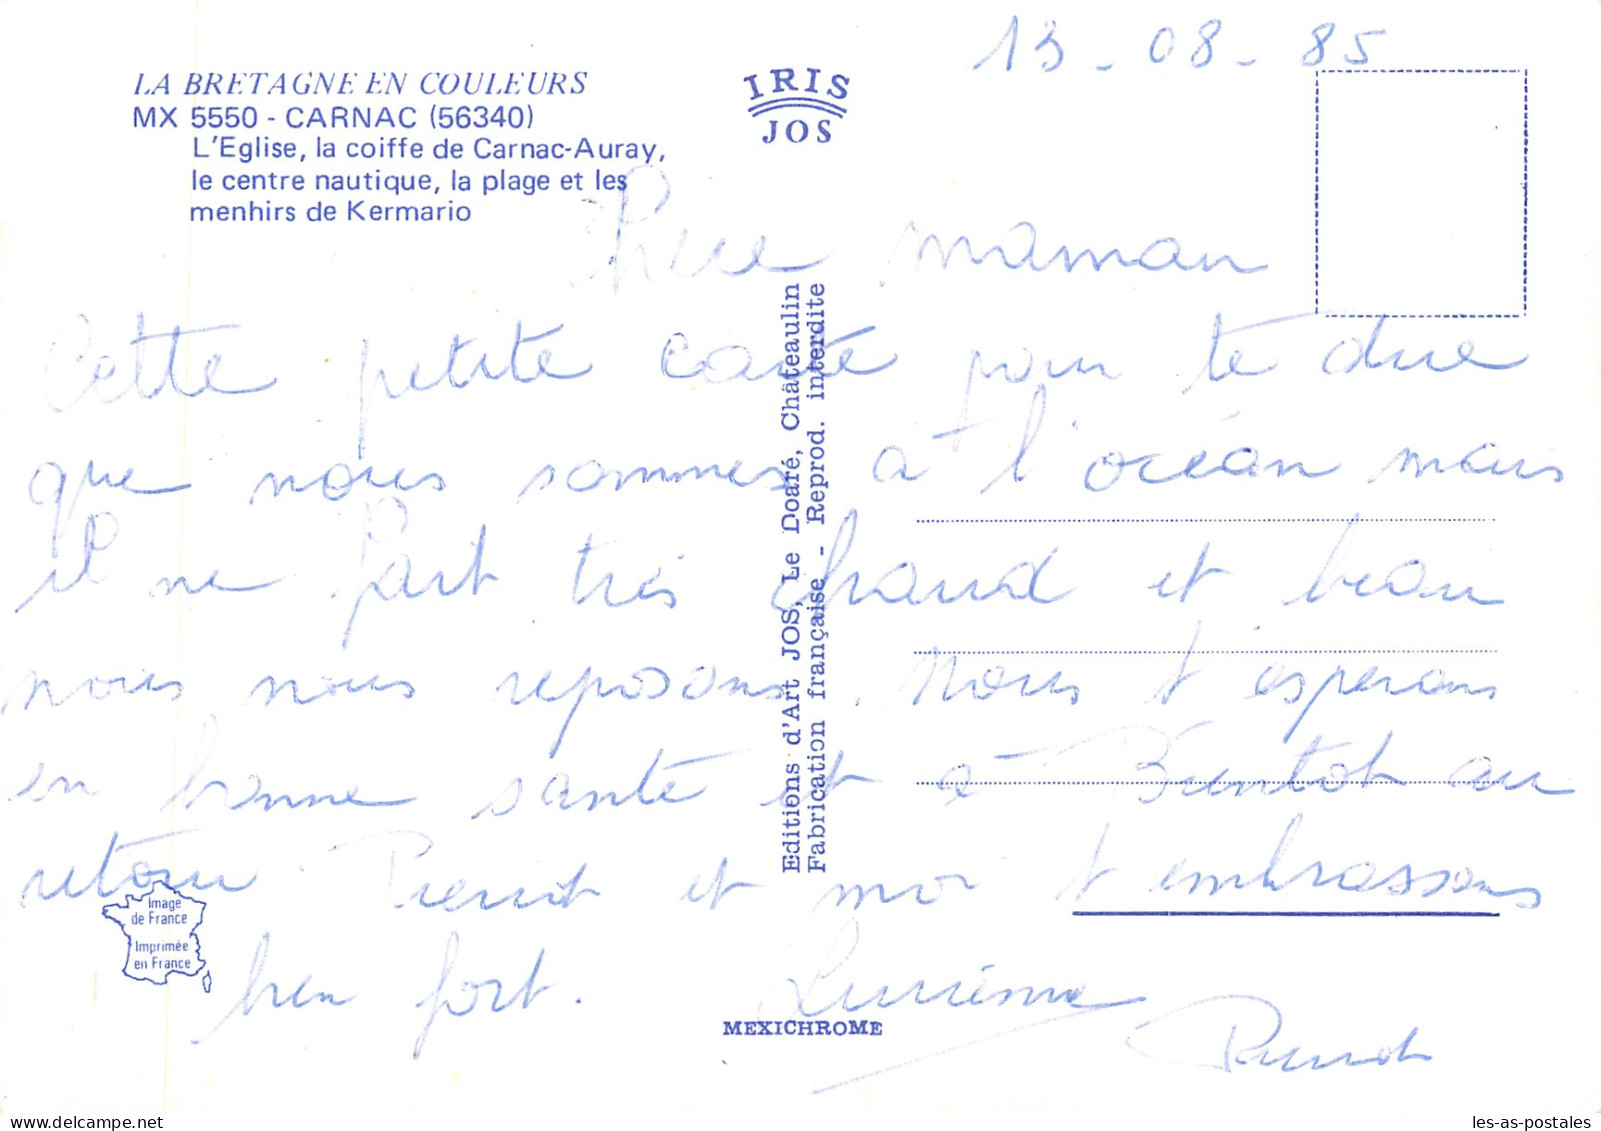 13-08-85
LA BRETAGNE EN COULEURS
MX 5550 - CARNAC (56340)
L'Eglise, la coiffe de Carnac-Auray,
le centre nautique, la plage et les
menhirs de Kermario
IRIS
JOS
Chere maman
Cette petite carte pour te dire
que nous sommes a l'océan mais
il ne fait très chaud et beau
nous nous reposons. Nous t'esperons
en bonne santé et a Bientot au
retour. Pierrot et moi t embrassons
bien fort.
Pierrot
Editions d'Art JOS, Le Doaré, Châteaulin
Fabrication française - Reprod. interdite
Image
de France
Imprimée
en France
MEXICHROME
les-as-postales